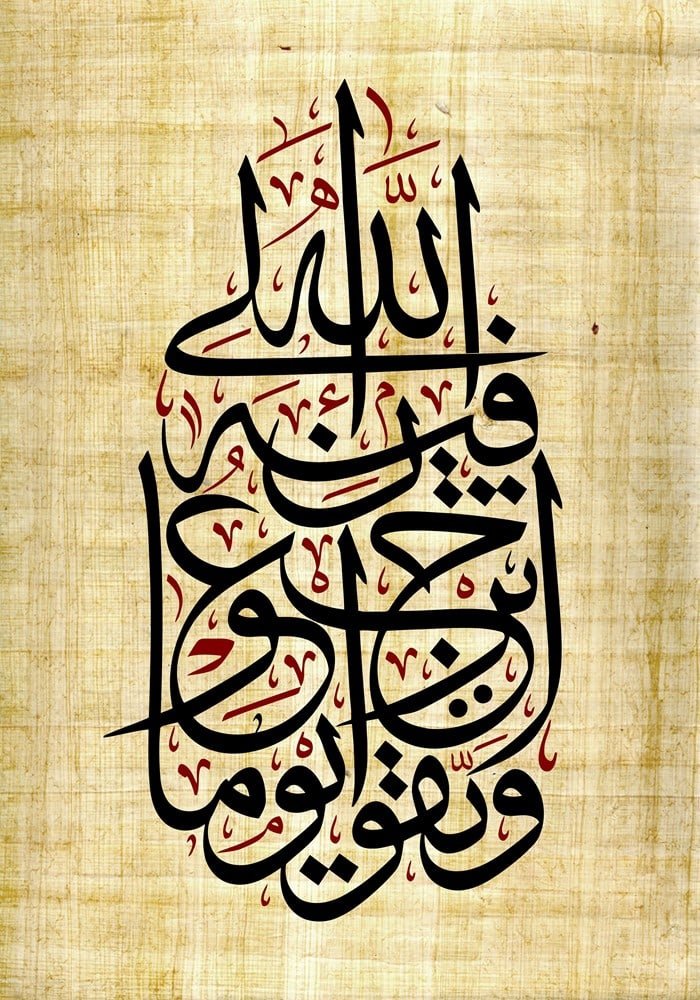 وَاتَّقُوا يَوْمًا تُرْجَعُونَ فِيهِ إِلَى اللَّهِ